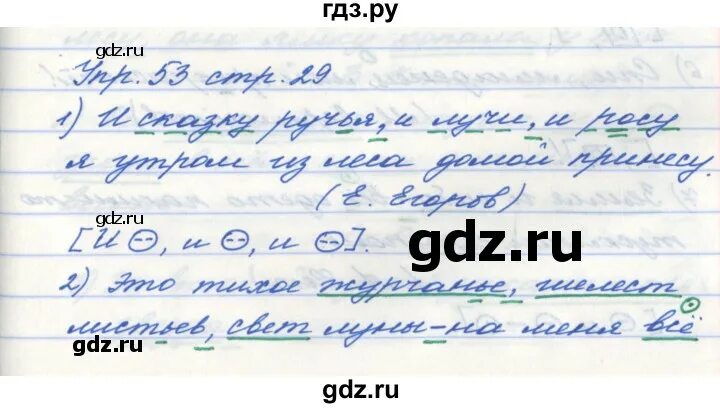 гдз.ру
gdz.ru
Упр. 53 стр. 29
1) И сказку ручья, и лучи, и росу
я утром из леса домой принесу.
gdz.ru
(Е. Егоров)
gdz.ru
[И ⊝, и ⊝, и ⊝].
gdz.ru
2) Это тихое журчанье, шелест
листьев, свет луны – на меня всё
gdz.ru
gdz.ru